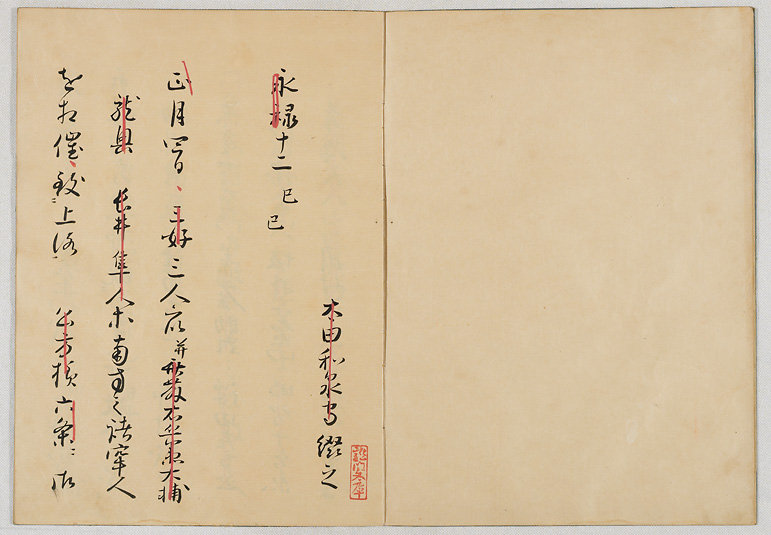 太田和泉守綴之
永禄十二己巳
正月四日、三好三人衆并斎藤右兵衛大輔
龍興 長井隼人等南方之諸牢人
を相催致上洛 公方様六条ニ御